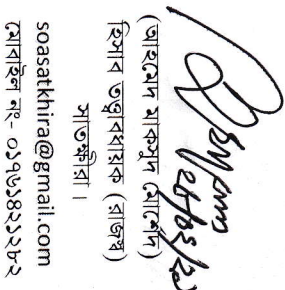 (আহমেদ মাকসুদ মোর্শেদ)
হিসাব তত্ত্বাবধায়ক (রাজস্ব)
সাতক্ষীরা।
soasatkhira@gmail.com
মোবাইল নং- ০১৭৬১৪২১২৮২